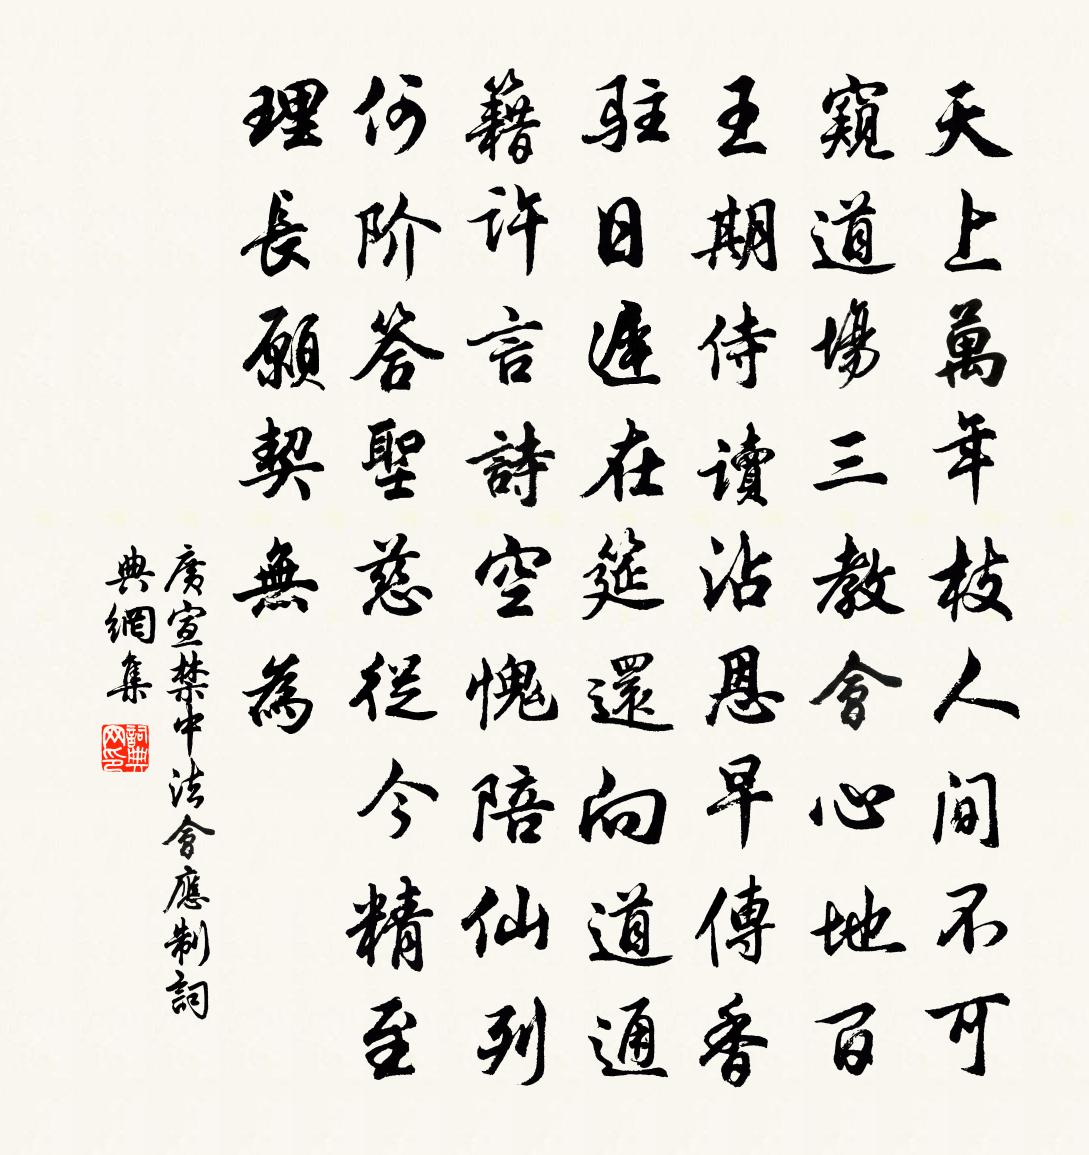 天上萬年枝人间不可
窺道場三教會心地百
王期侍讀沾恩早傳香
駐日遲在筵還向道通
籍许言詩空愧陪仙列
何阶答聖慈從今精至
理長願契無為
廣宣禁中法會應制詞
典網集
詞典
网印